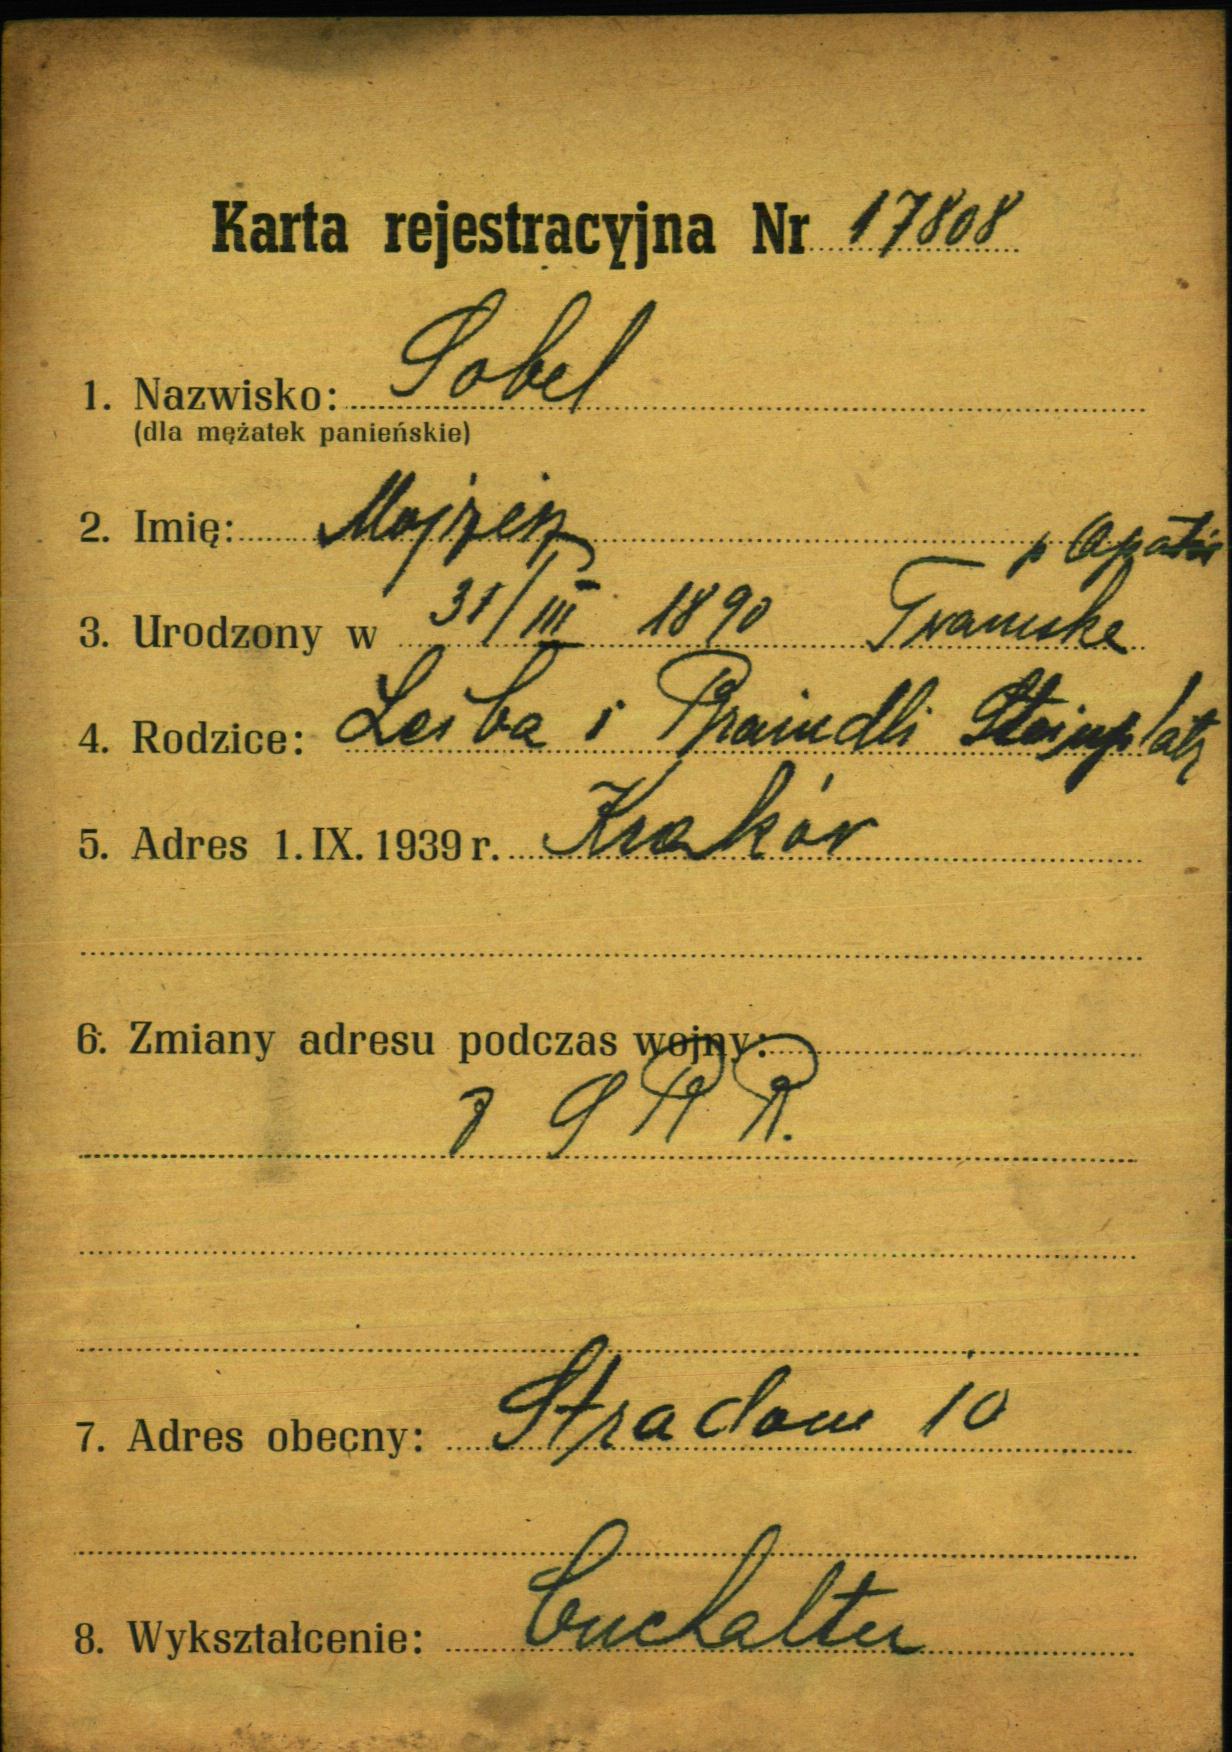 Karta rejestracyjna Nr 17808
1. Nazwisko: Sobel
(dla mężatek panieńskie)
2. Imię: Mojżesz
p Opatów
3. Urodzony w 31/III 1890 Iwaniska
4. Rodzice: Leiba i Braindli Steinplatz
5. Adres 1. IX. 1939 r. Kraków
6. Zmiany adresu podczas wojny:
Z S R R.
7. Adres obecny: Stradom 10
8. Wykształcenie: buchalter